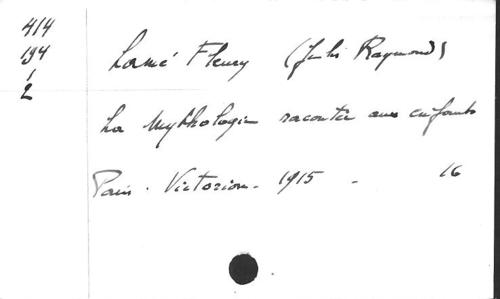 414
194
1
2
Lamé Fleury (Jules Raymond)
La Mythologie racontée aux enfants
Paris. Victorion. 1915 - 16